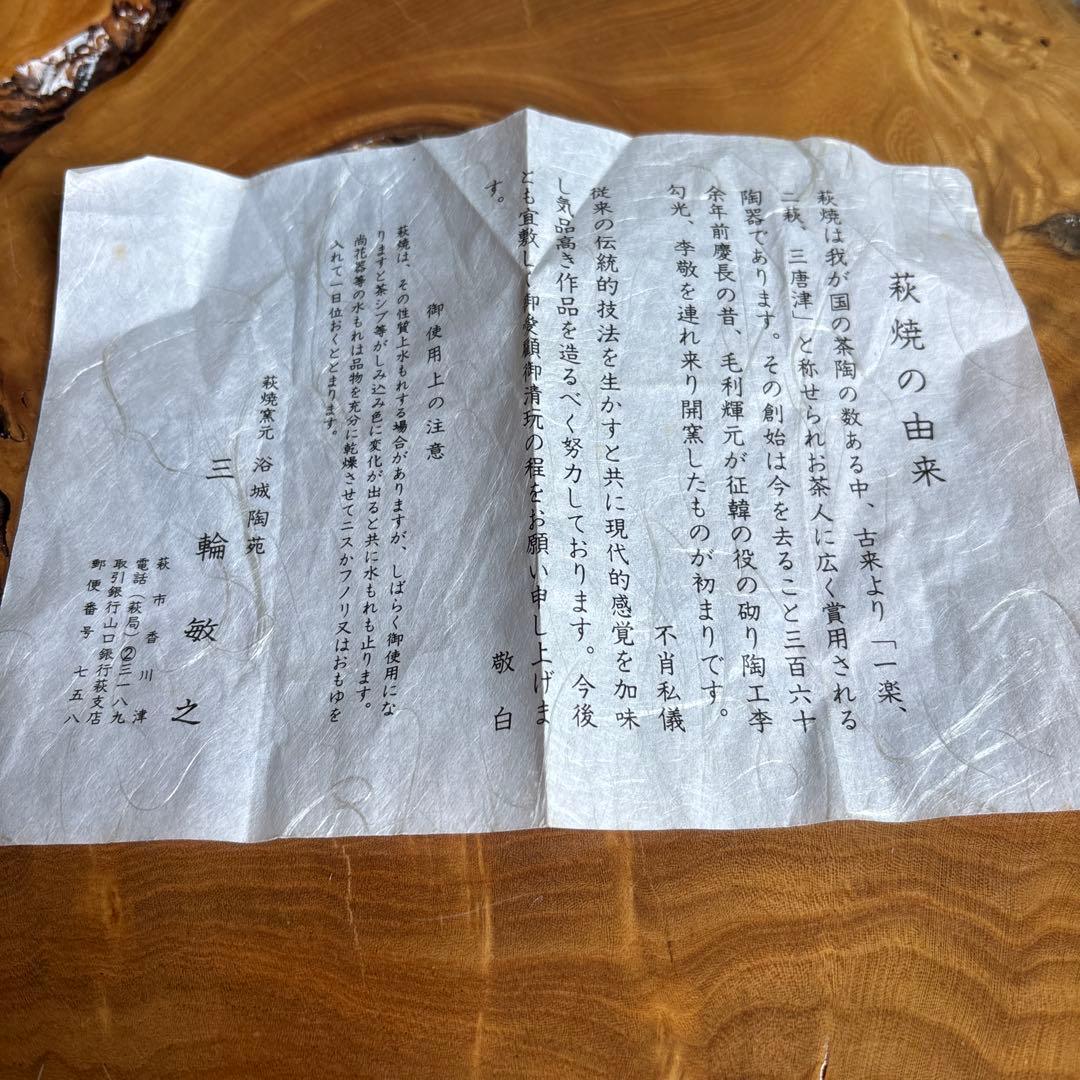 萩焼の由来
萩焼は我が国の茶陶の数ある中、古来より「一楽、
二萩、三唐津」と称せられお茶人に広く賞用される
陶器であります。その創始は今を去ること三百六十
余年前慶長の昔、毛利輝元が征韓の役の砌り陶工李
勾光、李敬を連れ来り開窯したものが初まりです。
不肖私儀
従来の伝統的技法を生かすと共に現代的感覚を加味
し気品高き作品を造るべく努力しております。今後
とも宜敷しく御愛顧御清玩の程をお願い申し上げま
す。
敬白
御使用上の注意
萩焼は、その性質上水もれする場合がありますが、しばらく御使用にな
りますと茶シブ等がしみ込み色に変化が出ると共に水もれも止ります。
尚花器等の水もれは品物を充分に乾燥させてニスかフノリ又はおもゆを
入れて一日位おくととまります。
萩焼窯元 浴城陶苑
三輪敏之
萩市香川津
電話(萩局)②三一八九
取引銀行山口銀行萩支店
郵便番号 七五八